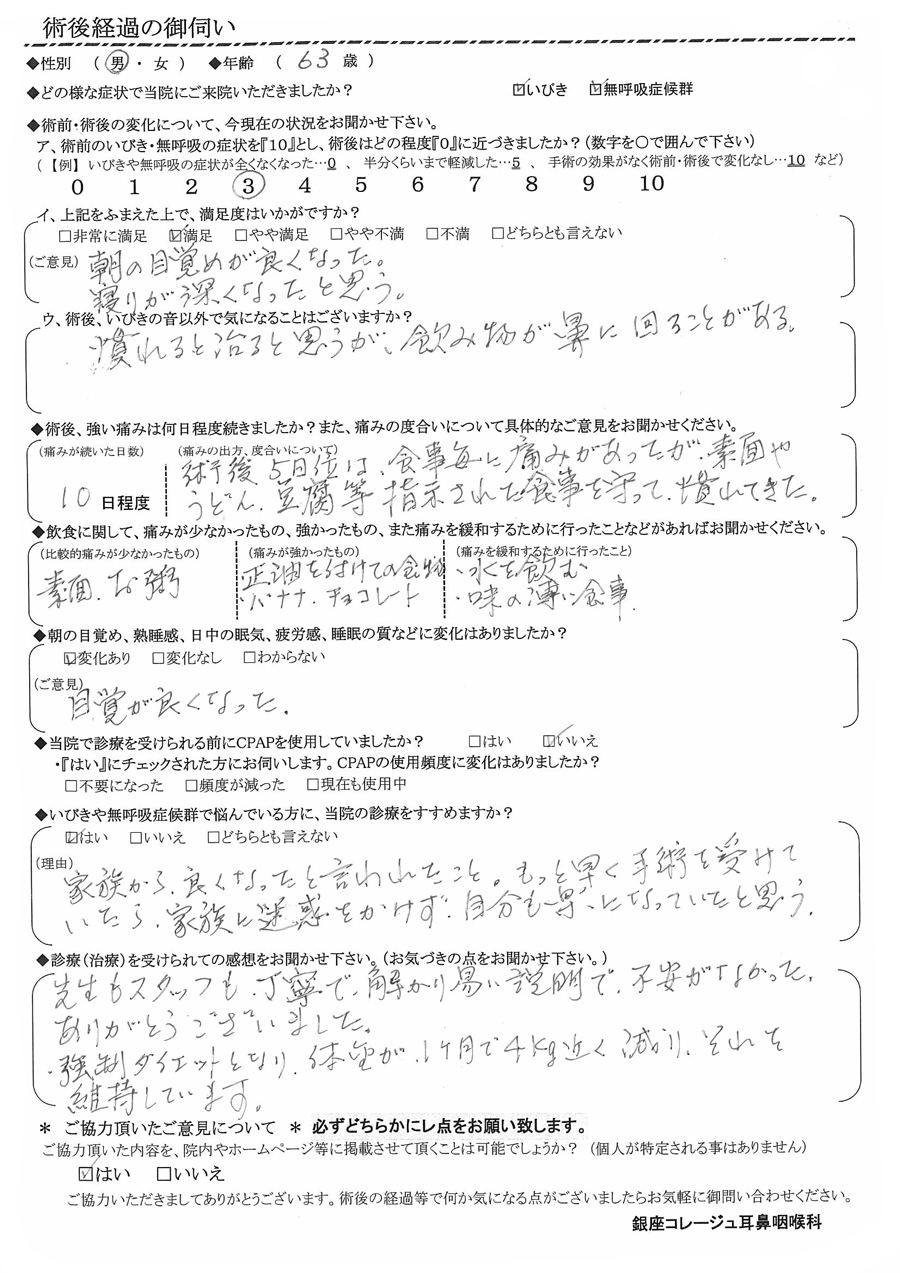 術後経過の御伺い
◆性別 ( 男 ・ 女 ) ◆年齢 ( 63 歳 )
◆どの様な症状で当院にご来院いただきましたか? ☑いびき ☑無呼吸症候群
◆術前・術後の変化について、今現在の状況をお聞かせ下さい。
ア、術前のいびき・無呼吸の症状を『10』とし、術後はどの程度『0』に近づきましたか?(数字を〇で囲んで下さい)
(【例】いびきや無呼吸の症状が全くなくなった…0 、 半分くらいまで軽減した…5 、 手術の効果がなく術前・術後で変化なし…10 など)
0 1 2 3 4 5 6 7 8 9 10
イ、上記をふまえた上で、満足度はいかがですか?
□非常に満足 ☑満足 □やや満足 □やや不満 □不満 □どちらとも言えない
(ご意見) 朝の目覚めが良くなった。
寝りが深くなったと思う。
ウ、術後、いびきの音以外で気になることはございますか?
慣れると治ると思うが、飲み物が鼻に回ることがある。
◆術後、強い痛みは何日程度続きましたか?また、痛みの度合いについて具体的なご意見をお聞かせください。
(痛みが続いた日数) (痛みの出方、度合いについて)
術後5日位は、食事毎に痛みがあったが、素面や
10 日程度 うどん、豆腐等指示された食事を守って、慣れてきた。
◆飲食に関して、痛みが少なかったもの、強かったもの、また痛みを緩和するために行ったことなどがあればお聞かせください。
(比較的痛みが少なかったもの) (痛みが強かったもの) (痛みを緩和するために行ったこと)
素面、お粥 正油を付けての食物 ・水を飲む
・バナナ、チョコレート ・味の薄い食事
◆朝の目覚め、熟睡感、日中の眠気、疲労感、睡眠の質などに変化はありましたか?
☑変化あり □変化なし □わからない
(ご意見)
目覚が良くなった。
◆当院で診療を受けられる前にCPAPを使用していましたか? □はい ☑いいえ
・『はい』にチェックされた方にお伺いします。CPAPの使用頻度に変化はありましたか?
□不要になった □頻度が減った □現在も使用中
◆いびきや無呼吸症候群で悩んでいる方に、当院の診療をすすめますか?
☑はい □いいえ □どちらとも言えない
(理由)
家族から、良くなったと言われたこと。もっと早く手術を受けて
いたら、家族に迷惑をかけず、自分も楽になっていたと思う。
◆診療(治療)を受けられての感想をお聞かせ下さい。(お気づきの点をお聞かせ下さい。)
先生もスタッフも、丁寧で、解かり易い説明で、不安がなかった。
ありがとうございました。
・強制ダイエットとなり、体重が、1ケ月で4kg近く減り、それを
維持しています。
* ご協力頂いたご意見について * 必ずどちらかにレ点をお願い致します。
ご協力頂いた内容を、院内やホームページ等に掲載させて頂くことは可能でしょうか? (個人が特定される事はありません)
☑はい □いいえ
ご協力いただきましてありがとうございます。術後の経過等で何か気になる点がございましたらお気軽に御問い合わせください。
銀座コレージュ耳鼻咽喉科